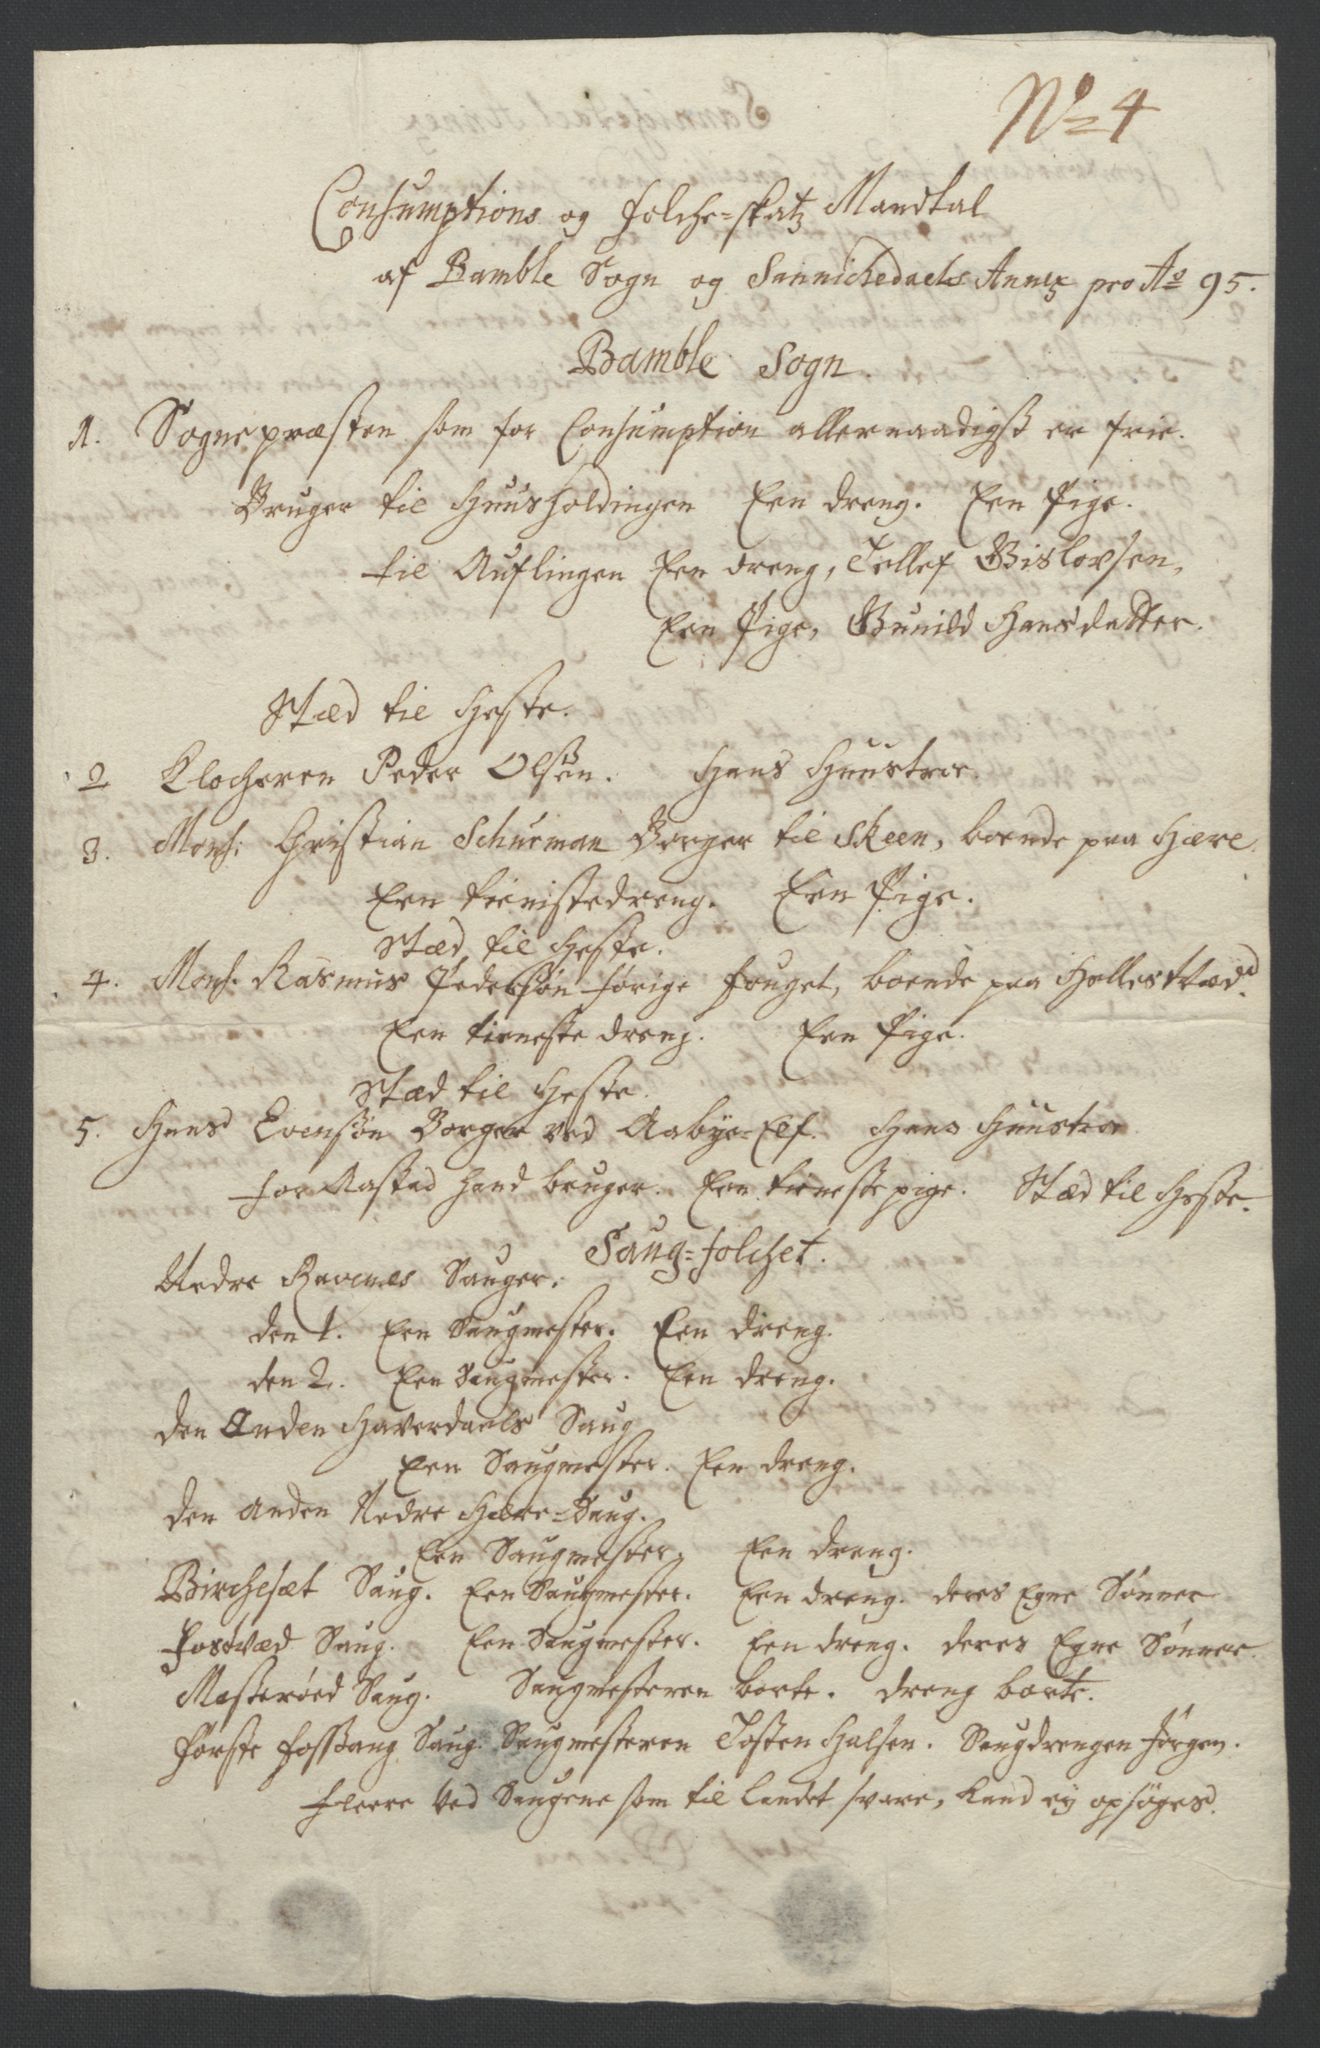 No 4
Consumptions og folche=skatz Mandtal
af Bamble Sogn og Sannichedaels Annex pro Ao 95.
Bamble Sogn.
1. Sognepræsten som for Consumption allernaadigst er frie.
Bruger til Huusholdingen Een dreng. Een Pige.
til Auflingen Een dreng, Tellef Gislorsen,
Een Pige, Gunild Hansdatter.
Stæd til Heste.
2 Klocheren Peder Olsøn. Hans Huustroe.
3. Mons: Christian Schurman Borger til Skeen, boende paa Hære.
Een tienistedreng. Een Pige.
Stæd til Heste.
4. Mons. Rasmus Pedersøn forige fouget, boende paa Hellestvæd.
Een tieneste dreng. Een Pige.
Stæd til Heste.
5. Hans Evensøn Borger ved Aabye=Elf. Hans Huustroe
for Rastad hand bruger. Een tieneste pige. Stæd til Heste.
Saug=folchet.
Nedre Ravenes Sauger.
den 1. Een Saugmester. Een dreng.
den 2. Een Saugmester. Een dreng.
den Anden Haverdaels Saug
Een Saugmester. Een dreng.
den anden Nedre Hære=Saug.
Een Saugmester. Een dreng.
Birchesæt Saug. Een Saugmester. Een dreng. deres Egne Sønner
Fosvæd Saug. Een Saugmester. Een dreng. deres Egne Sønner.
Masterøed Saug. Saugmesteren borte. dreng borte.
Første Fossang Saug. Saugmesteren Tosten Halsen. Saugdrengen Jørgen.
fleere ved Saugene som til landet svare, kand ey opsøges.